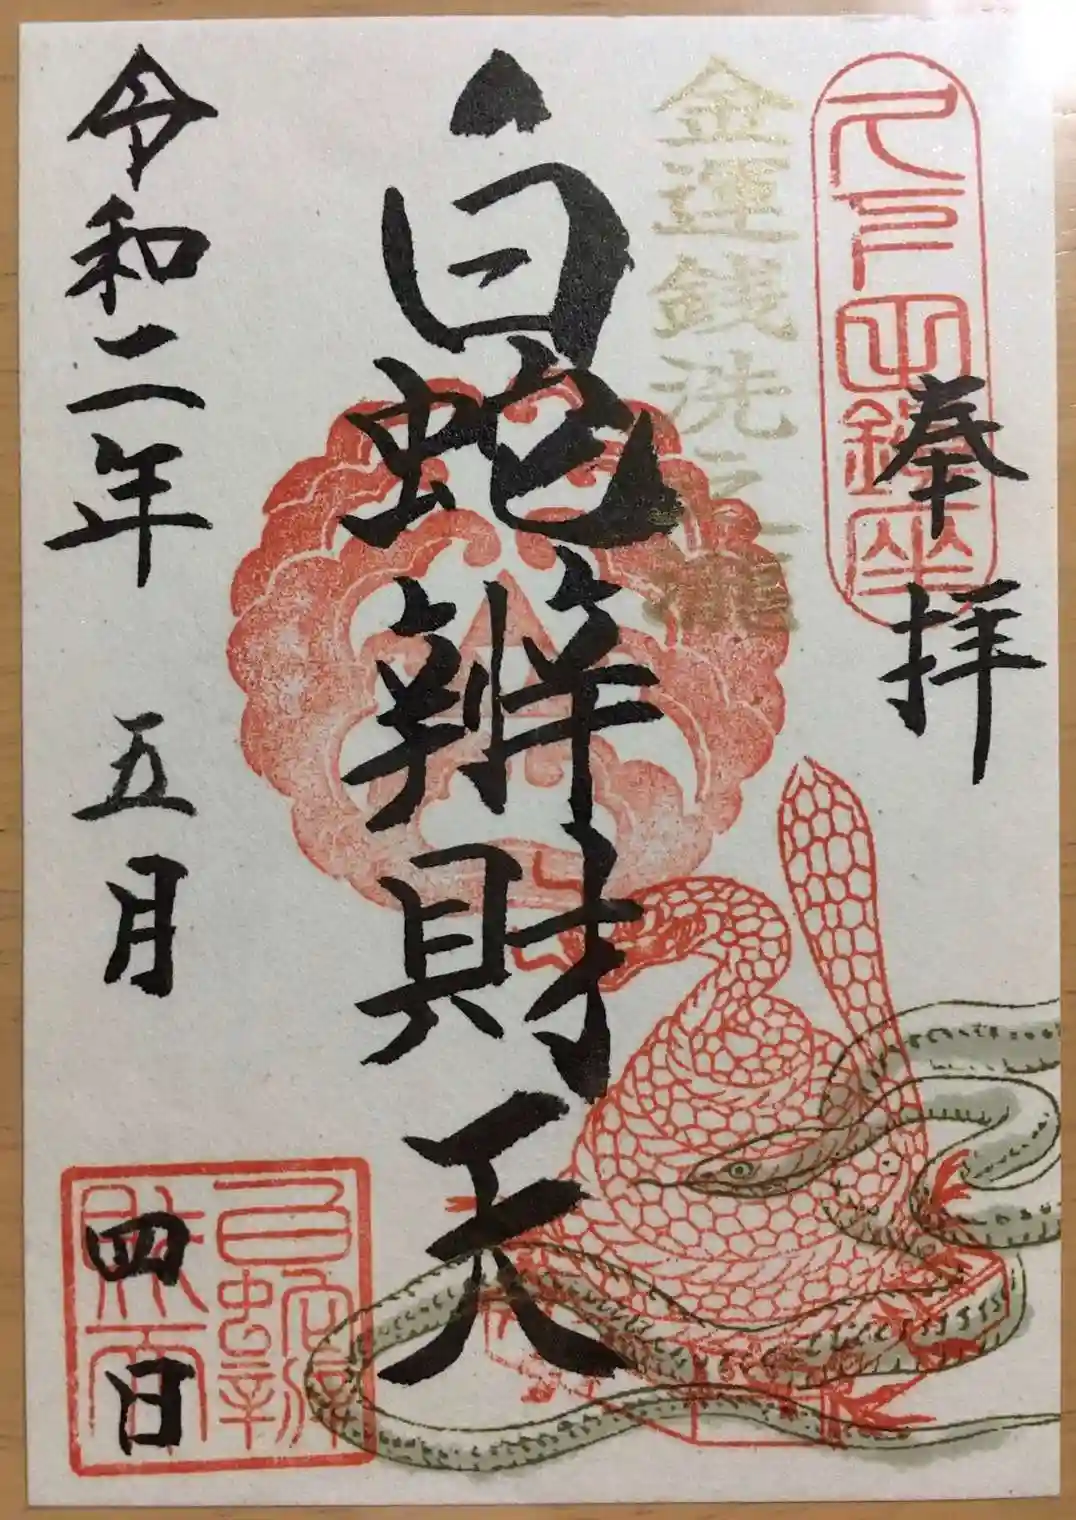 奉拝
山鎮座
金運銭洗之瀧
白蛇辨財天
令和二年 五月 四日
白蛇辨財天